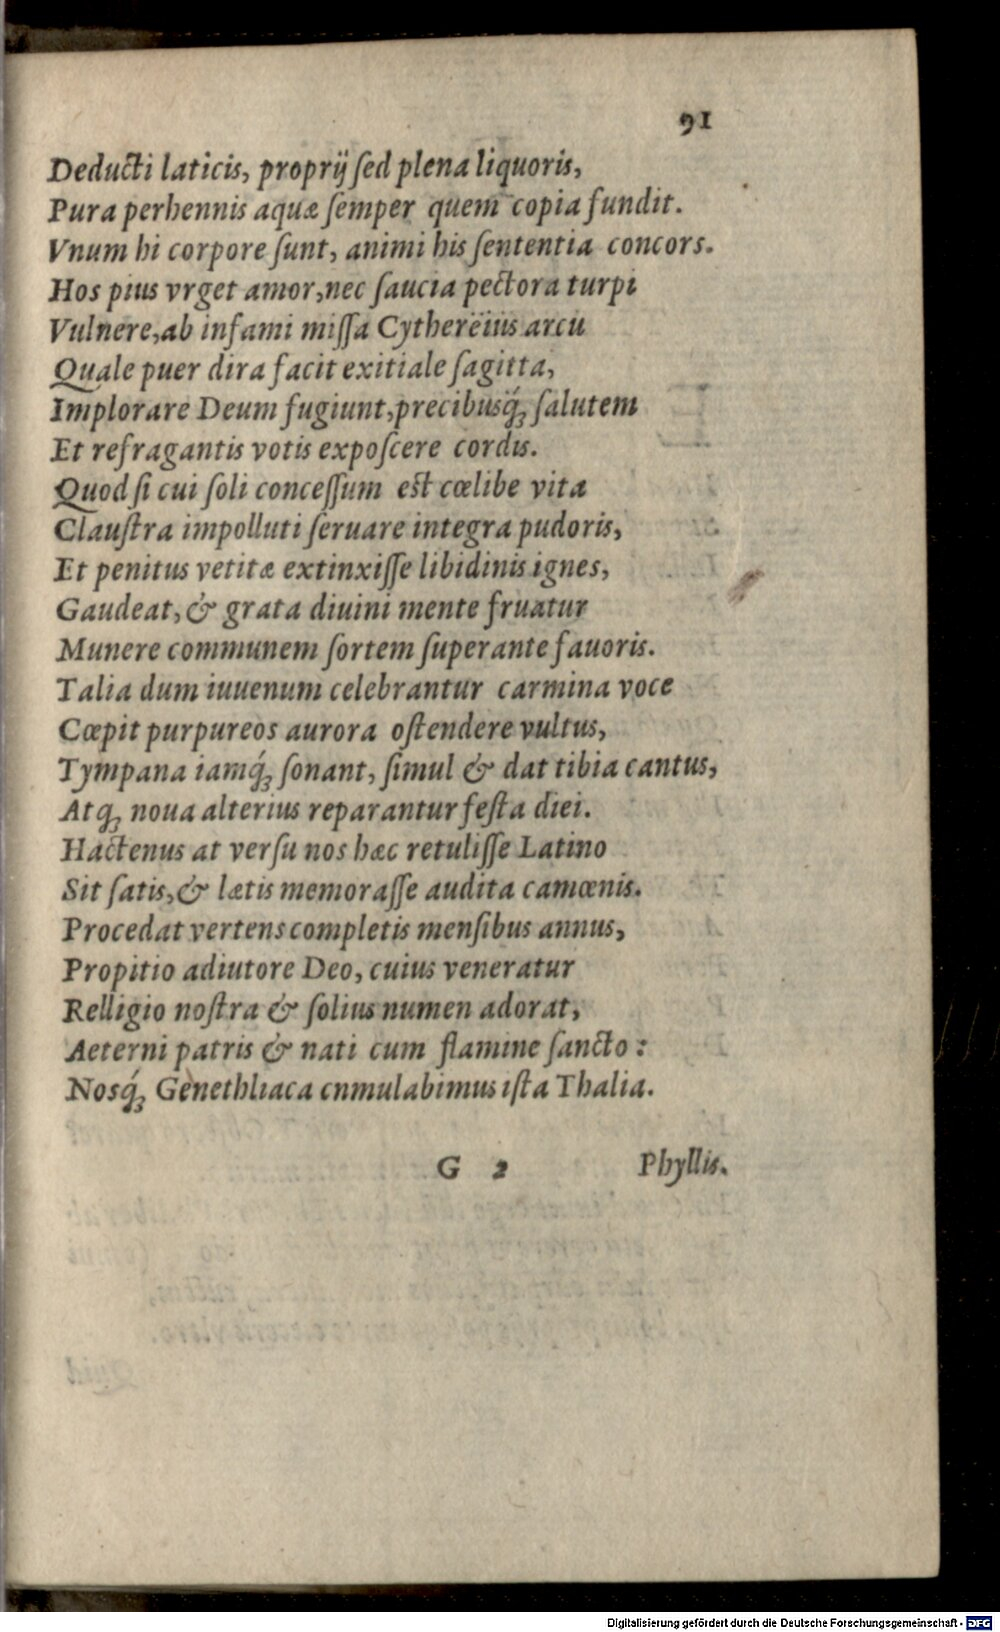 91
Deducti laticis, proprij ſed plena liquoris,
Pura perhennis aquæ ſemper quem copia fundit.
Vnum hi corpore ſunt, animi his ſententia concors.
Hos pius vrget amor, nec ſaucia pectora turpi
Vulnere, ab infami miſſa Cythereïus arcu
Quale puer dira facit exitiale ſagitta,
Implorare Deum fugiunt, precibusq́ꝫ ſalutem
Et refragantis votis expoſcere cordis.
Quod ſi cui ſoli conceſſum est cœlibe vita
Clauſtra impolluti ſeruare integra pudoris,
Et penitus vetitæ extinxiſſe libidinis ignes,
Gaudeat, & grata diuini mente fruatur
Munere communem ſortem ſuperante fauoris.
Talia dum iuuenum celebrantur carmina voce
Cœpit purpureos aurora oſtendere vultus,
Tympana iamq́ꝫ ſonant, ſimul & dat tibia cantus,
Atqꝫ noua alterius reparantur feſta diei.
Hactenus at verſu nos hæc retuliſſe Latino
Sit ſatis, & lætis memoraſſe audita camœnis.
Procedat vertens completis menſibus annus,
Propitio adiutore Deo, cuius veneratur
Relligio noſtra & ſolius numen adorat,
Aeterni patris & nati cum flamine ſancto:
Nosq́ꝫ Genethliaca cnmulabimus iſta Thalia.
G 2 Phyllis.
Digitalisierung gefördert durch die Deutsche Forschungsgemeinschaft - DFG